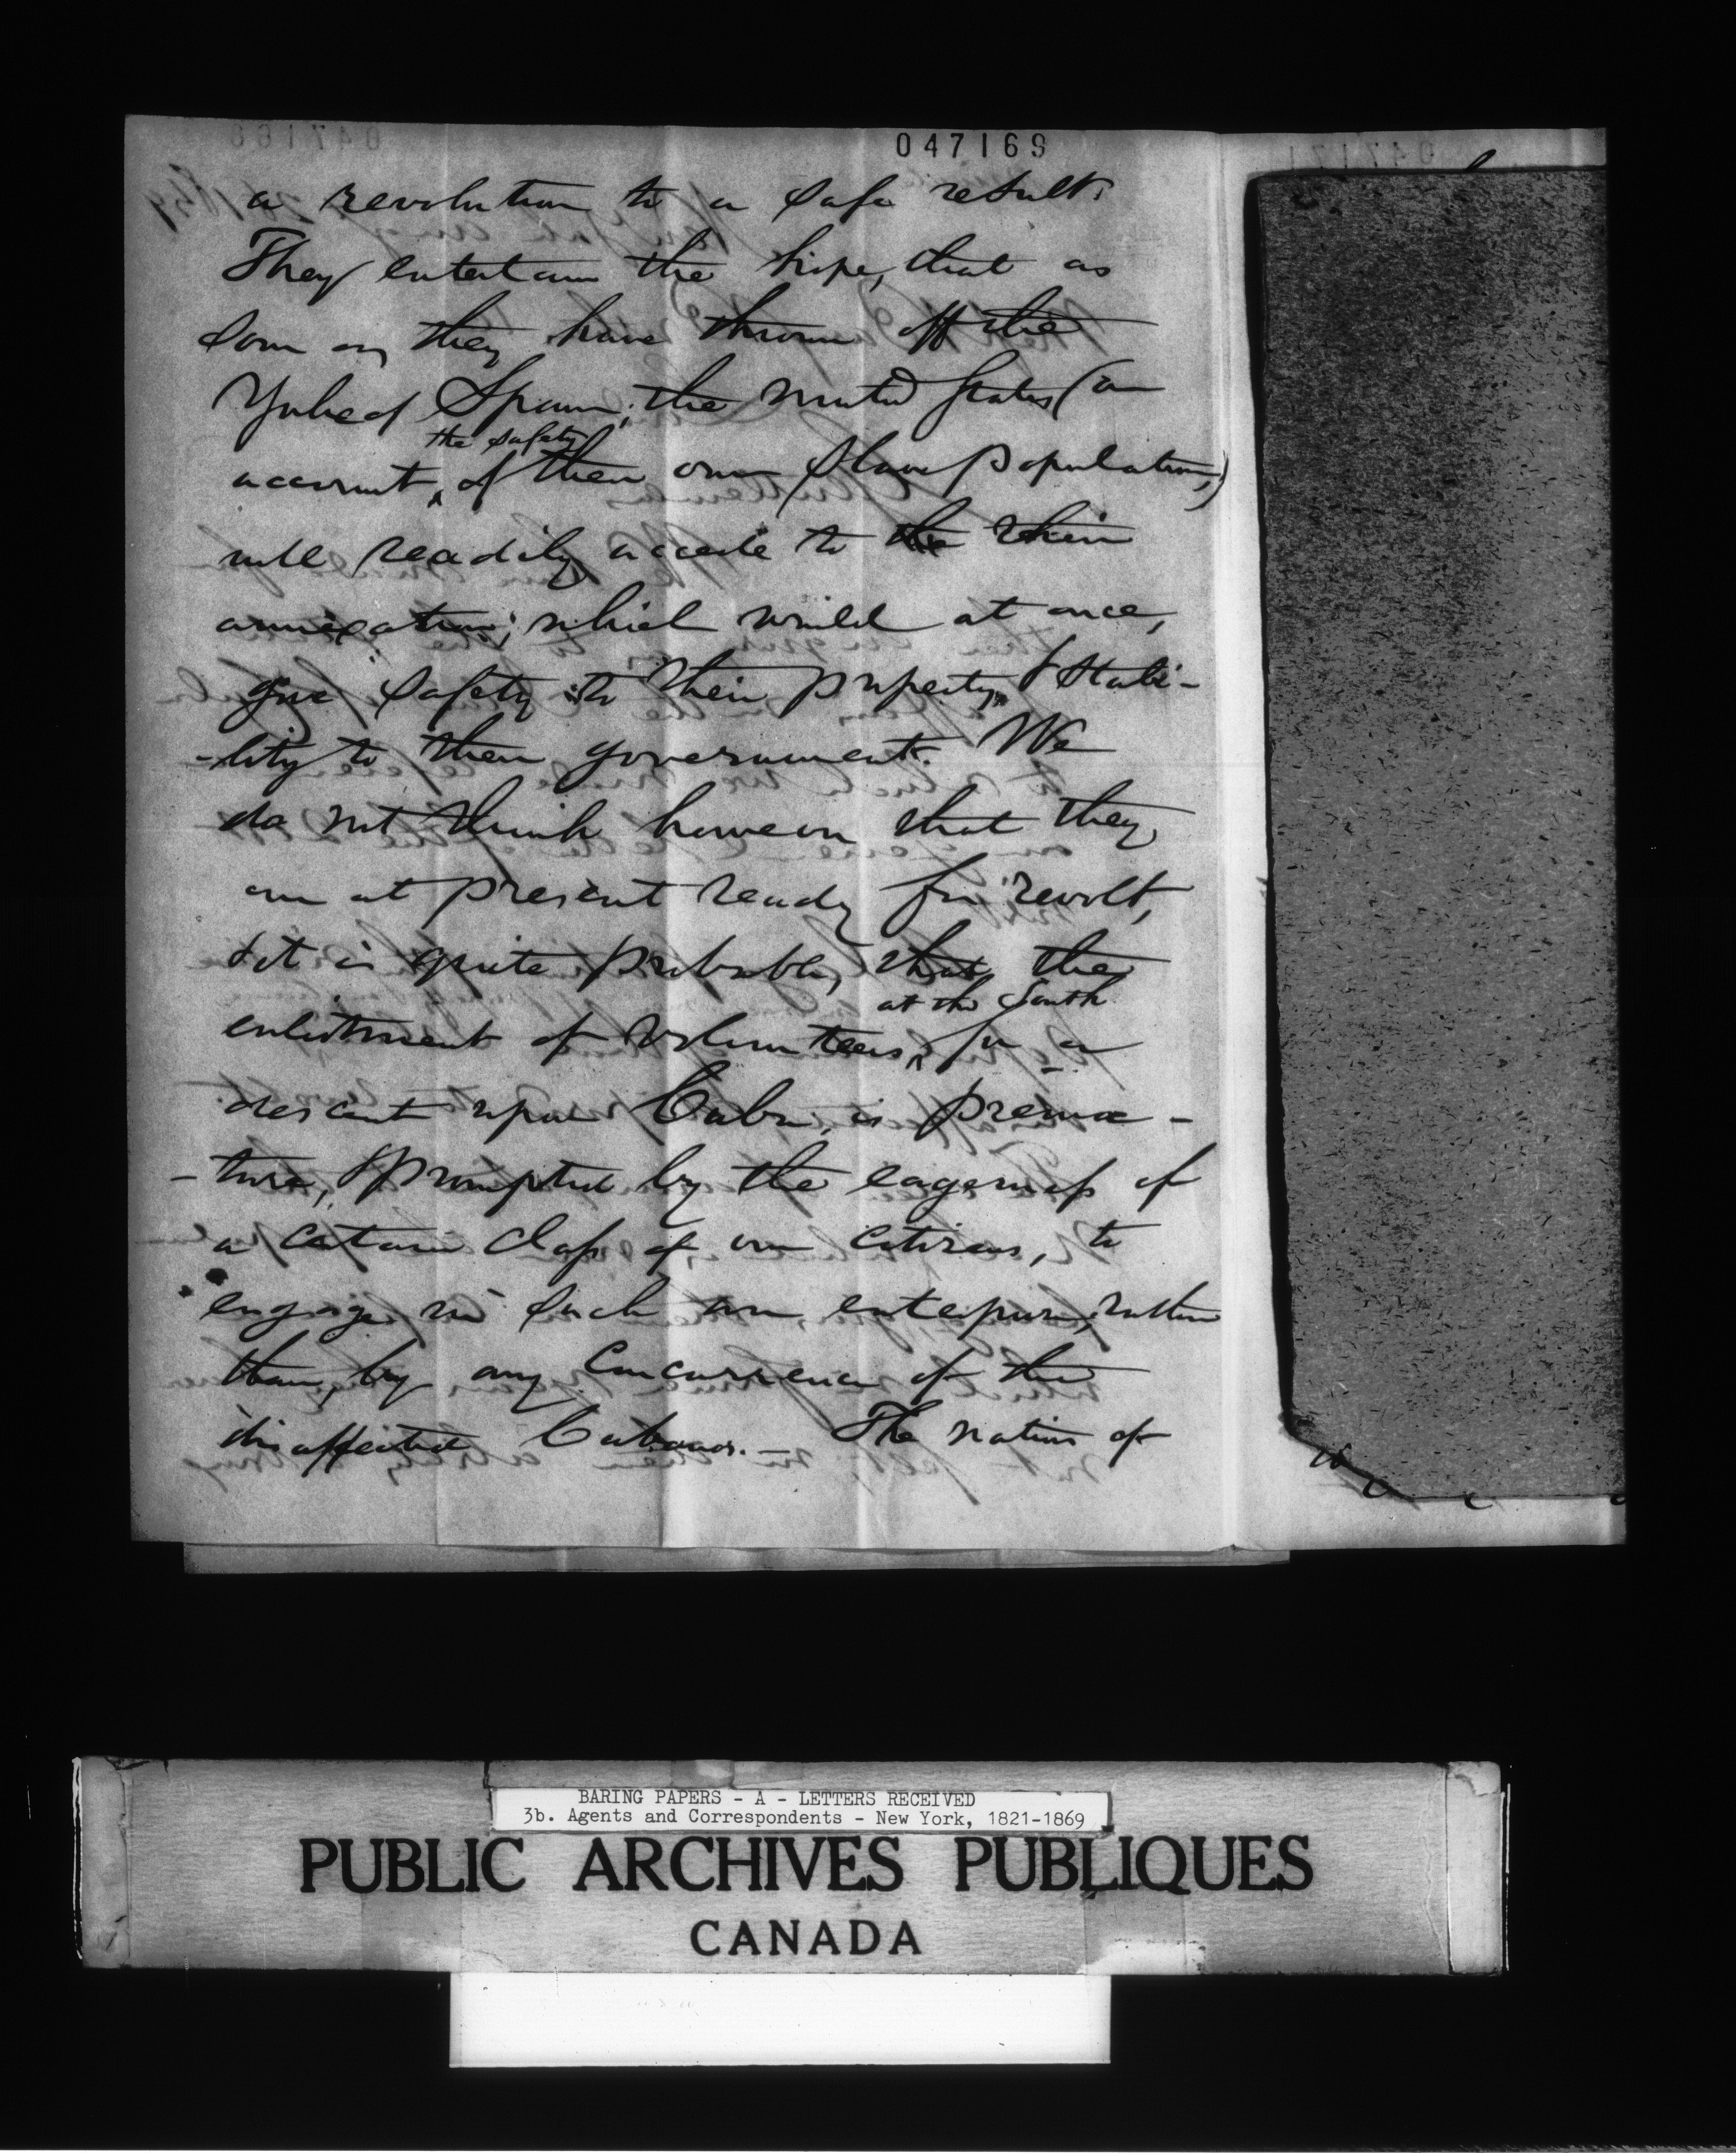 047169
a revolution to a safe result.
They entertain the hope, that as
soon as they have thrown off the
Yoke of Spain, the United States (on
the safety
account, of their own slave population,)
will readily accede to the their
annexation; which would at once,
give safety to their property, & stabi-
-lity to their government. We
do not think however that they
are at present ready for revolt,
& it is quite probable, that the
at the South
enlistment of volunteers, for a
descent upon Cuba, is prema-
-ture, & prompted by the eagerness of
a certain class of our citizens, to
engage in such an enterprise, rather
than, by any concurrence of the
disaffected Cubans. - The nation of
BARING PAPERS - A - LETTERS RECEIVED
3b. Agents and Correspondents - New York, 1821-1869
PUBLIC ARCHIVES PUBLIQUES
CANADA